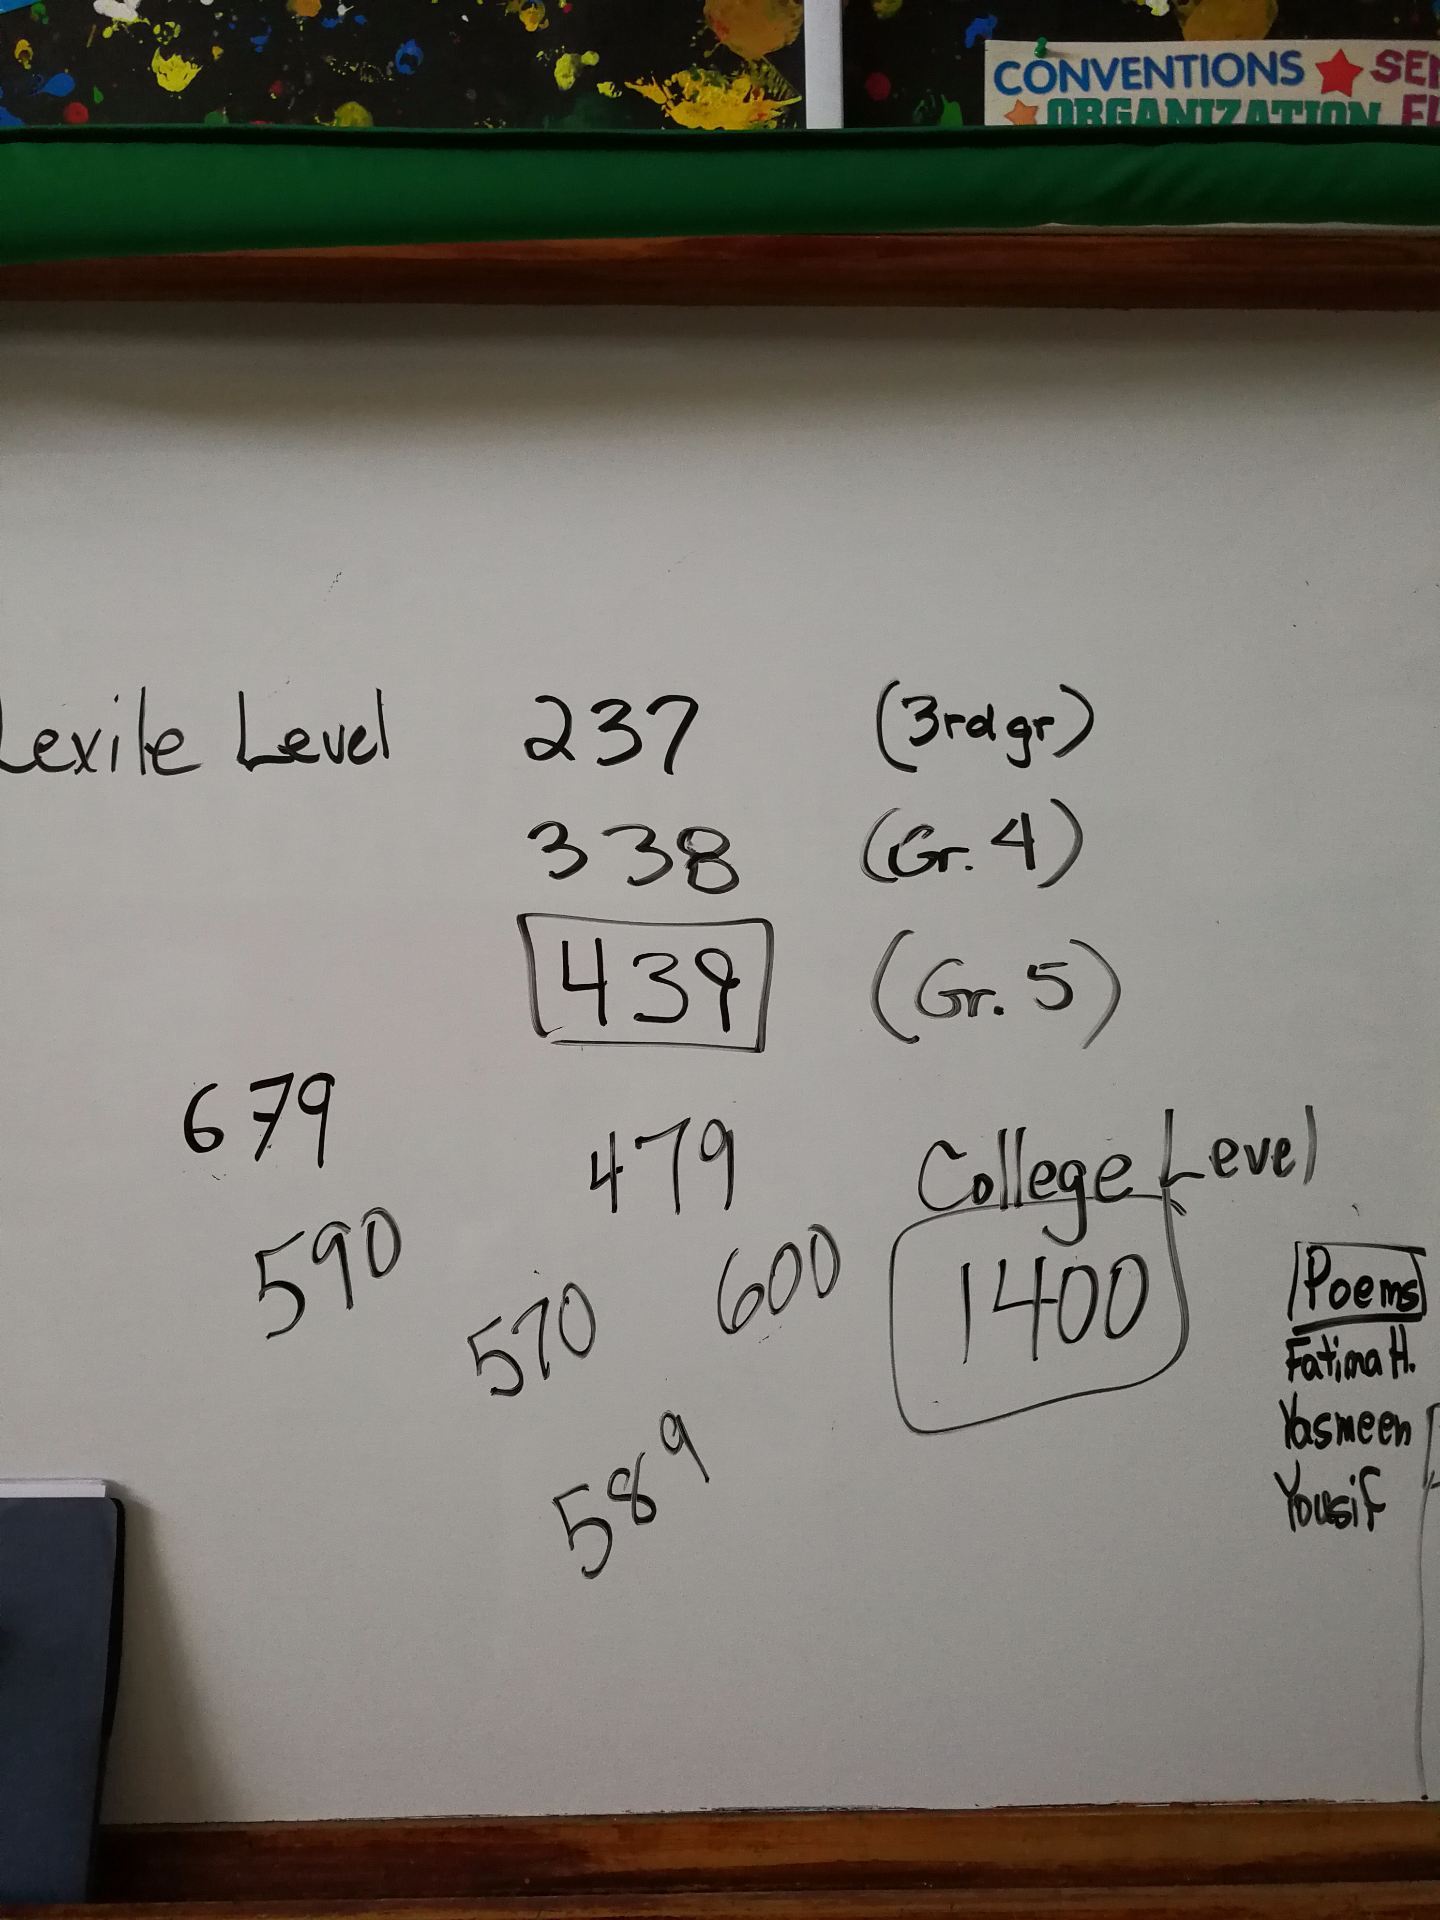 CONVENTIONS
ORGANIZATION
Lexile Level 237 (3rd gr)
338 (Gr. 4)
439 (Gr. 5)
679
479
College Level
590
570
600
1400
589
Poems
Fatima H.
Yasmeen
Yousif